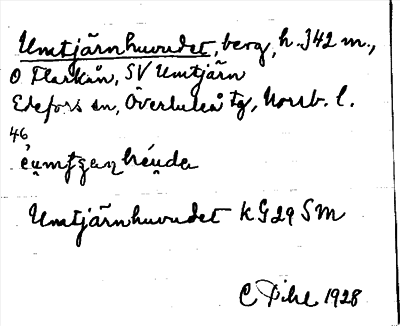 Umtjärnhuvudet, berg, h. 342 m.,
O Flarkån, SV Umtjärn
Edefors sn, Överluleå tg, Norrb. l.
46
Umtjärnhuvudet KG29 SM
C Pihl 1928